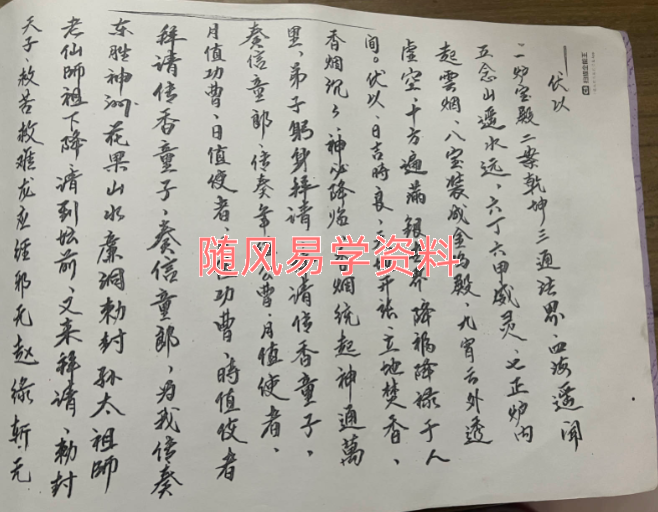 伏以
一炉宝殿二案乾坤三通法界、四海遥闻
五念山遥水远、六丁六甲威灵、七正炉内
起雲烟、八宝装成金马殿、九霄云外透
虚空、十方遍满 降祸降禄于人
间。伏以、日吉時良、天地开张、立地焚香、
香烟沉沉、神必降临、香烟统起神通萬
里、弟子躬身拜请、请信香童子、
奏信童郎、传奏年 功曹、月值使者、
月值功曹、日值使者、 功曹、時值使者
拜请传香童子、奏信童郎、为我传奏
东胜神洲花果山水廉洞勅封孙太祖師
老仙師祖下降、请到坛前、又来拜请、勅封
天子、救苦救难 邪 斩
随风易学资料